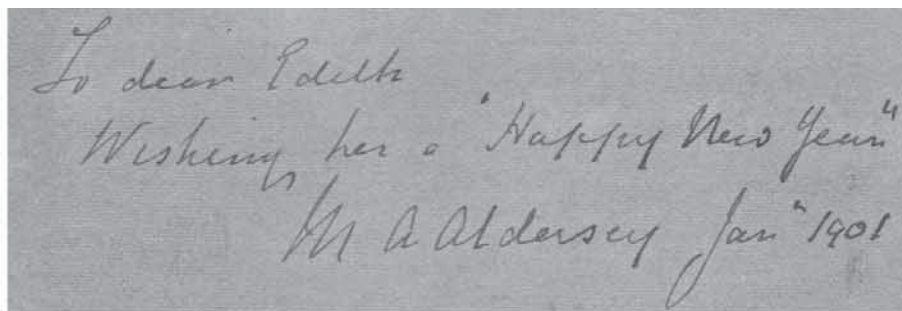 To dear Edith
Wishing her a "Happy New Year"
M A Aldersey Jan" 1901